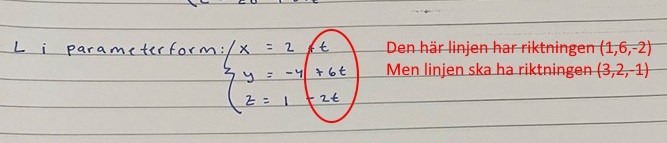 L i parameterform: x = 2 + t
y = -4 + 6t
z = 1 - 2t
Den här linjen har riktningen (1,6,-2)
Men linjen ska ha riktningen (3,2,-1)